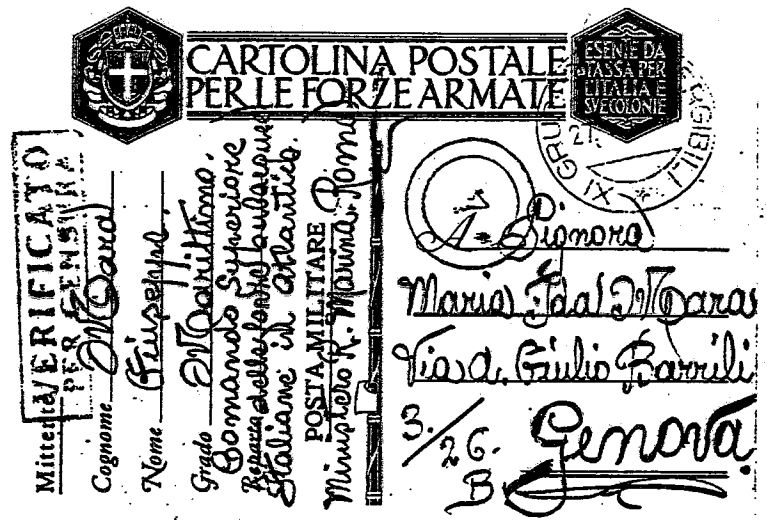 CARTOLINA POSTALE
PER LE FORZE ARMATE
ESENTE DA
TASSA PER
L'ITALIA E
SUE COLONIE
VERIFICATO
PER CENSURA
Mittente
Cognome Mara
Nome Giuseppe.
Grado Marittimo.
Comando Superiore
Reparto delle forze subacquee
Italiane in atlantico.
POSTA MILITARE
Ministero R. Marina. Roma
XI GRU
27
A. Signora
Maria Ida Mara
Via A. Giulio Barrili
3./26.
B
Genova